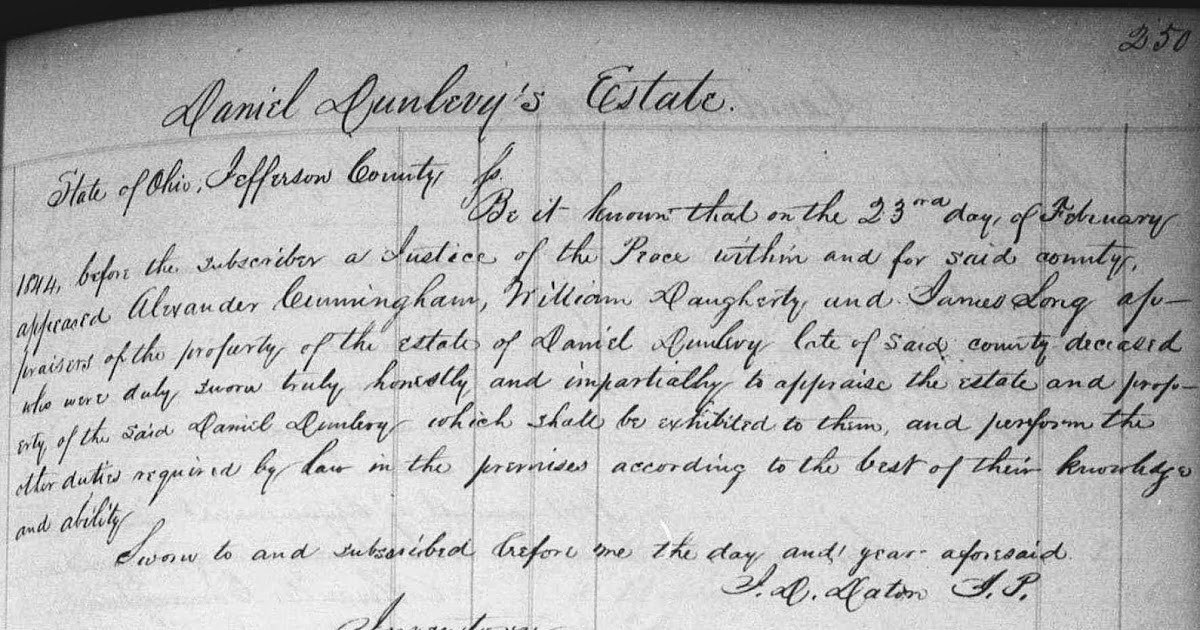 250
Daniel Dunlevy's Estate.
State of Ohio, Jefferson County ss.
Be it known that on the 23rd day of February
1844, before the subscriber a Justice of the Peace within and for said county,
appeared Alexander Cunningham, William Daugherty and James Long ap-
praisers of the property of the estate of Daniel Dunlevy late of said county deceased
who were duly sworn truly honestly and impartially to appraise the estate and prop-
erty of the said Daniel Dunlevy which shall be exhibited to them, and perform the
other duties required by law in the premises according to the best of their knowledge
and ability
Sworn to and subscribed before me the day and year aforesaid.
J. D. Daton J.P.
Inventory